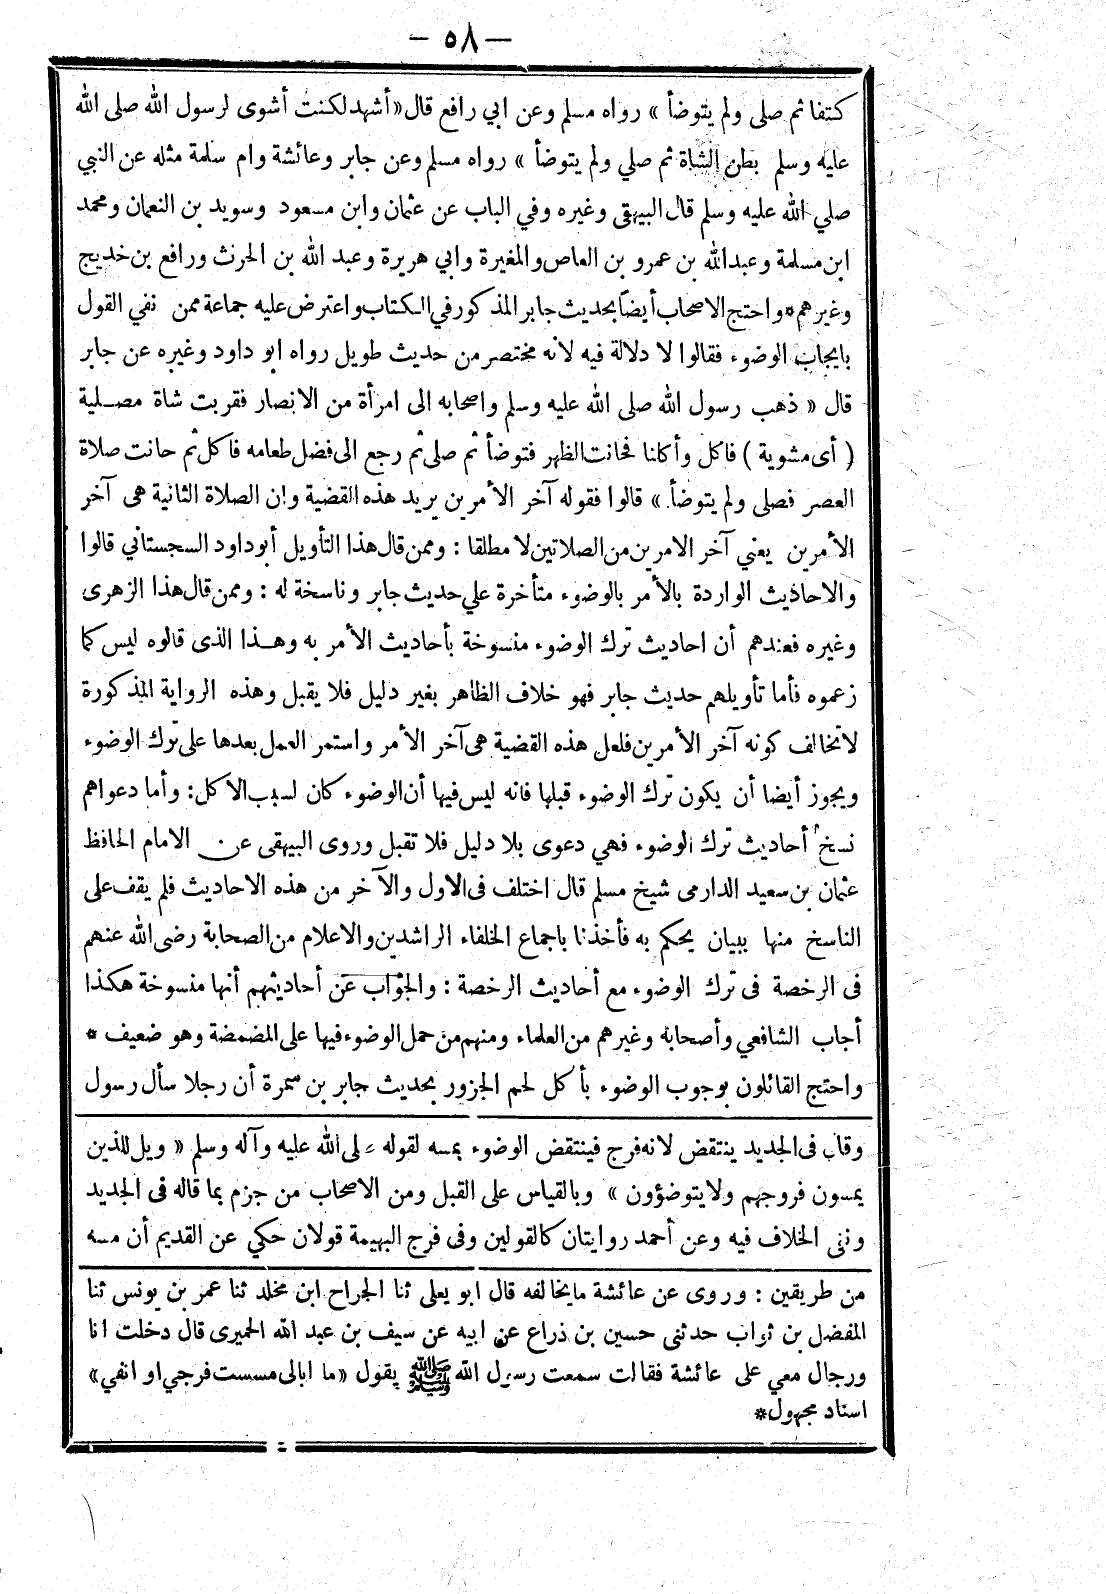 — ٥٨ —
كتفا ثم صلى ولم يتوضأ » رواه مسلم وعن ابي رافع قال «أشهد لكنت أشوى لرسول الله صلى الله
عليه وسلم بطن الشاة ثم صلي ولم يتوضأ » رواه مسلم وعن جابر وعائشة وام سلمة مثله عن النبي
صلي الله عليه وسلم قال البيهقى وغيره وفي الباب عن عثمان وابن مسعود وسويد بن النعمان ومحمد
ابن مسلمة وعبد الله بن عمرو بن العاص والمغيرة وابي هريرة وعبد الله بن الحرث ورافع بن خديج
وغيرهم * واحتج الاصحاب أيضا بحديث جابر المذكور في الكتاب واعترض عليه جماعة ممن نفي القول
بايجاب الوضوء فقالوا لا دلالة فيه لانه مختصر من حديث طويل رواه ابو داود وغيره عن جابر
قال « ذهب رسول الله صلى الله عليه وسلم واصحابه الى امرأة من الانصار فقربت شاة مصلية
( أى مشوية ) فاكل وأكلنا فحانت الظهر فتوضأ ثم صلى ثم رجع الى فضل طعامه فاكل ثم حانت صلاة
العصر فصلى ولم يتوضأ » قالوا فقوله آخر الأمرين يريد هذه القضية وان الصلاة الثانية هى آخر
الأمرين يعني آخر الامرين من الصلاتين لا مطلقا : وممن قال هذا التأويل أبو داود السجستاني قالوا
والاحاديث الواردة بالأمر بالوضوء متأخرة علي حديث جابر وناسخة له : وممن قال هذا الزهرى
وغيره فعندهم أن احاديث ترك الوضوء منسوخة بأحاديث الأمر به وهذا الذى قالوه ليس كما
زعموه فأما تأويلهم حديث جابر فهو خلاف الظاهر بغير دليل فلا يقبل وهذه الرواية المذكورة
لا تخالف كونه آخر الأمرين فلعل هذه القضية هى آخر الأمر واستمر العمل بعدها على ترك الوضوء
ويجوز أيضا أن يكون ترك الوضوء قبلها فانه ليس فيها أن الوضوء كان لسبب الاكل : وأما دعواهم
نسخ أحاديث ترك الوضوء فهي دعوى بلا دليل فلا تقبل وروى البيهقى عن الامام الحافظ
عثمان بن سعيد الدارمى شيخ مسلم قال اختلف فى الاول والآخر من هذه الاحاديث فلم يقف على
الناسخ منها ببيان يحكم به فأخذنا باجماع الخلفاء الراشدين والاعلام من الصحابة رضى الله عنهم
فى الرخصة فى ترك الوضوء مع أحاديث الرخصة : والجواب عن أحاديثهم أنها منسوخة هكذا
أجاب الشافعي وأصحابه وغيرهم من العلماء ومنهم من حمل الوضوء فيها على المضمضة وهو ضعيف *
واحتج القائلون بوجوب الوضوء بأكل لحم الجزور بحديث جابر بن سمرة أن رجلا سأل رسول
وقال فى الجديد ينتقض لانه فرج فينتقض الوضوء بمسه لقوله صلى الله عليه وآله وسلم « ويل للذين
يمسون فروجهم ولا يتوضؤون » وبالقياس على القبل ومن الاصحاب من جزم بما قاله فى الجديد
ونفى الخلاف فيه وعن أحمد روايتان كالقولين وفى فرج البهيمة قولان حكي عن القديم أن مسه
من طريقين : وروى عن عائشة ما يخالفه قال ابو يعلى ثنا الجراح ابن مخلد ثنا عمر بن يونس ثنا
المفضل بن ثواب حدثنى حسين بن ذراع عن ابيه عن سيف بن عبد الله الحميرى قال دخلت انا
ورجال معي على عائشة فقالت سمعت رسول الله ﷺ يقول «ما ابالى مسست فرجي او انفي»
اسناد مجهول *